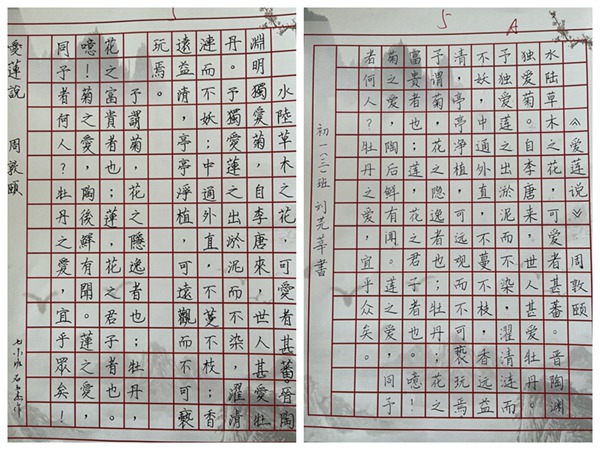 水陸草木之花,可愛者甚蕃。晉陶
淵明獨愛菊,自李唐來,世人甚愛牡
丹。予獨愛蓮之出淤泥而不染,濯清
漣而不妖,中通外直,不蔓不枝;香
遠益清,亭亭淨植,可遠觀而不可褻
玩焉。
予謂菊,花之隱逸者也;牡丹,
花之富貴者也;蓮,花之君子者也。
噫!菊之愛,陶後鮮有聞。蓮之愛,
同予者何人?牡丹之愛,宜乎眾矣!
愛蓮說 周敦頤
5 A
《爱莲说》 周敦颐
水陆草木之花,可爱者甚蕃。晋陶渊
独爱菊。自李唐来,世人甚爱牡丹。
予独爱莲之出淤泥而不染,濯清涟而
不妖,中通外直,不蔓不枝,香远益
清,亭亭净植,可远观而不可亵玩焉
予谓菊,花之隐逸者也;牡丹,花之
富贵者也;莲,花之君子者也。噫!
菊之爱,陶后鲜有闻。莲之爱,同予
者何人?牡丹之爱,宜乎众矣。
初一(三)班 刘書